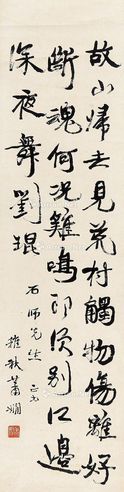 故山歸去見荒村觸物傷離好
斷魂何況雞鳴即須別江邊
深夜舞劉琨
石師先生 正之
稚秋蕭嫻